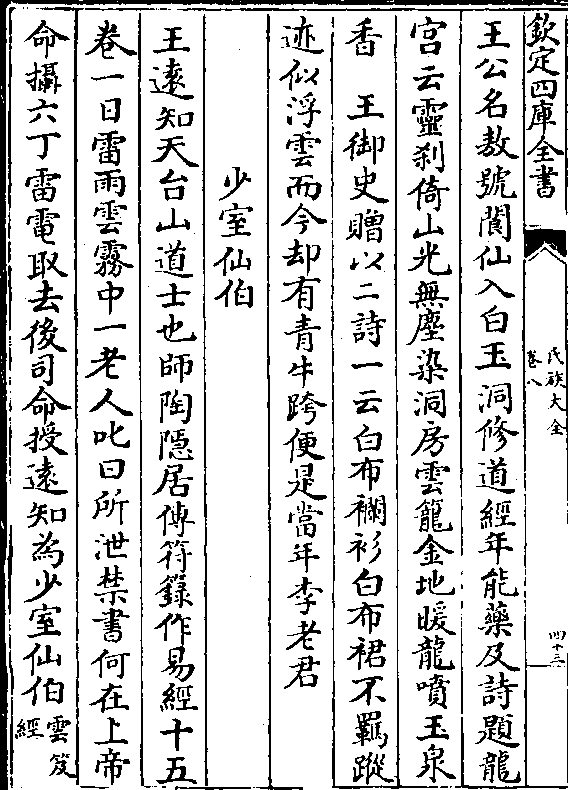 欽定四庫全書
氏族大全
卷八
四十三
王公名敖號閬仙入白玉洞修道經年能藥及詩題龍
宫云靈刹倚山光無塵染洞房雲籠金地暖龍噴玉泉
香　王御史贈以二詩一云白布襴衫白布裙不羈蹤
迹似浮雲而今却有青牛跨便是當年李老君
少室仙伯
王遠知天台山道士也師陶隠居傳符籙作易經十五
卷一日雷雨雲霧中一老人叱曰所泄禁書何在上帝
命攝六丁雷電取去後司命授遠知為少室仙伯雲笈
經